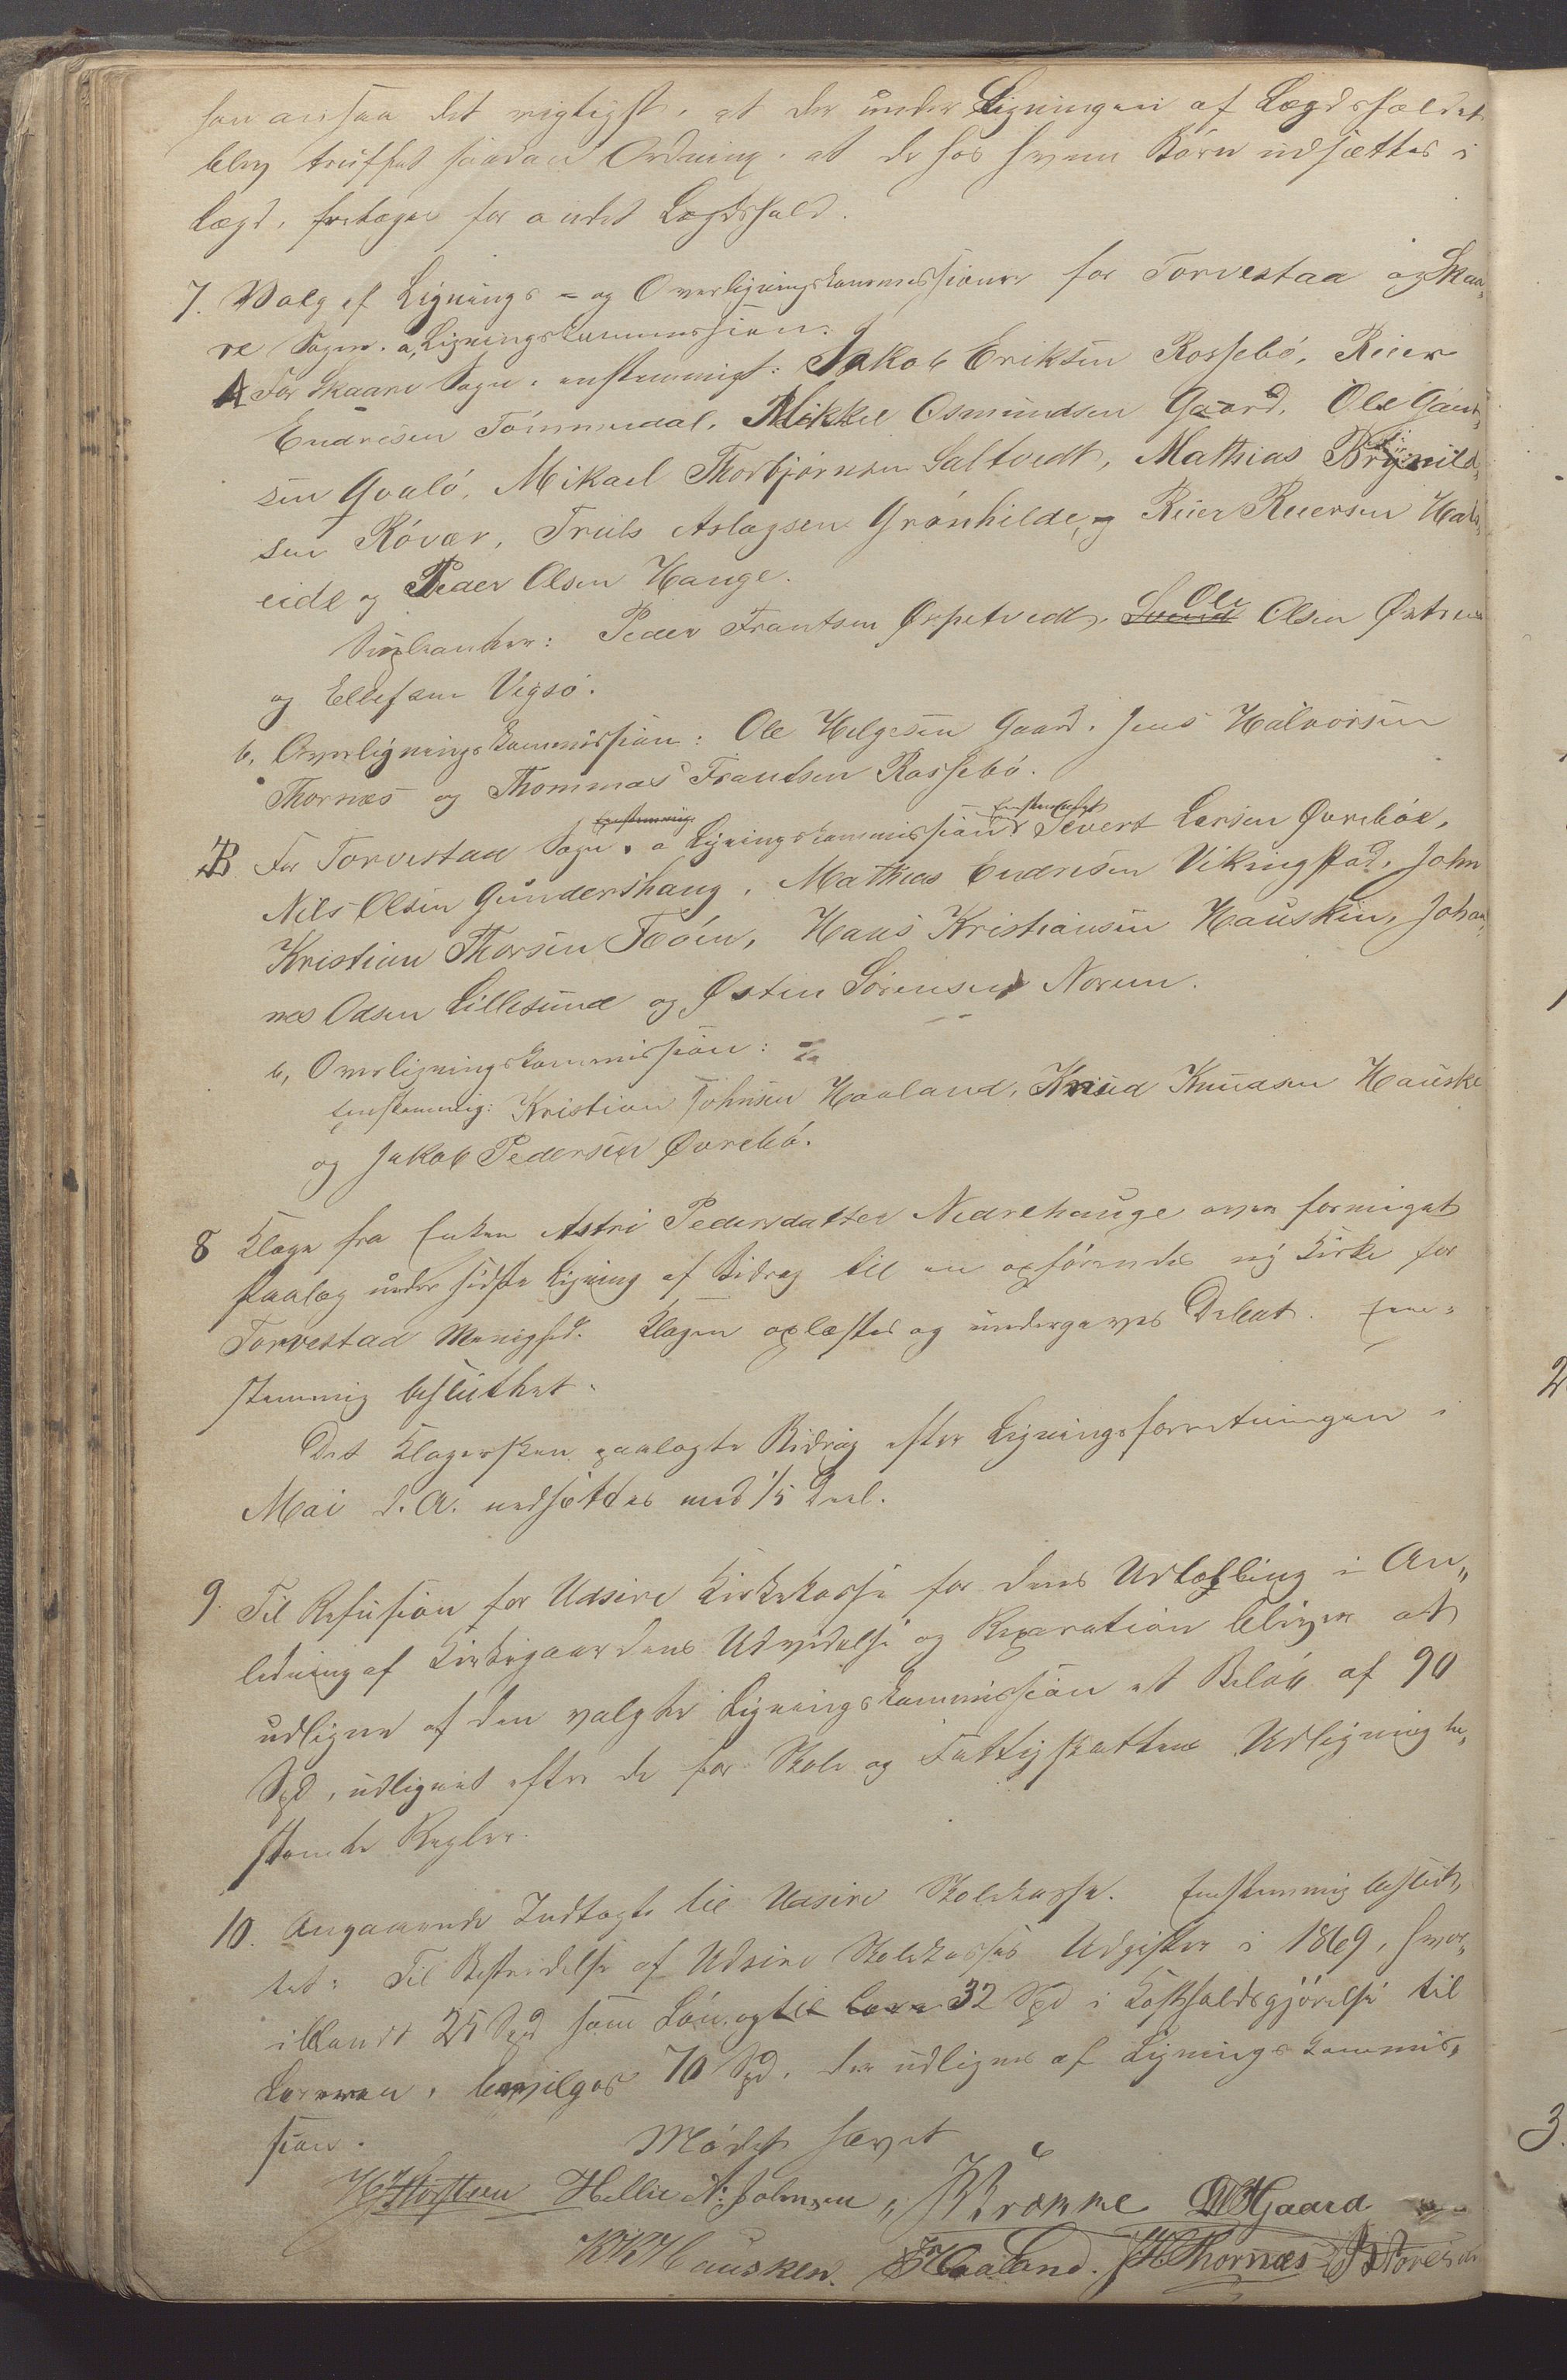 han ansaa det rigtigst, at der under Ligningen af Lægdsholdet
blev truffet saadan Ordning, at de hos hvem Børn udsættes i
Lægd, fritages for andet Lægdshold.
7. Valg af Lignings- og Overligningskommissioner for Torvestad og Skaa-
re Sogn. a, Ligningskommission:
A For Skaare Sogn, enstemmigt: Jakob Eriksen Rossebö, Reier
Endresen Tömmerdal, Mikkel Osmundsen Gaard, Ole Gaut-
sen Gvalö, Mikael Thorbjörnsen Saltvedt, Mathias Brynild-
sen Röver, Truls Aslagsen Grönhilde, Reier Reiersen Hads-
eide og Peder Olsen Hauge.
Supleanter: Peder Frantsen Øspetvedt, Ole Olsen Østrem
og Ellefsen Vigsö.
b, Overligningskommission: Ole Helgesen Gaard, Jens Halvorsen
Thornæs og Thommas Frantsen Rossebö.
B For Torvestad Sogn. a Ligningskommission enstemmigt Severt Larsen Øvreböe,
Nils Olsen Gundershaug, Mathias Endresen Vikingstad, John
Kristian Thorsen Feöen, Hans Kristiansen Hausken, Johan-
nes Odsen Lillesund og Østen Sörensen Norem.
b, Overligningskommission:
Enstemmig: Kristian Johnsen Haaland, Knud Knudsen Hauske
og Jakob Pedersen Øvrebö.
8 Klage fra Enken Astri Pedersdatter Nedrehauge over formeget
Paalæg under sidste Ligning af Bidrag til en opførendes ny Kirke for
Torvestad Menighed. Klagen oplæstes og undergaves Debat. Een-
stemmig besluttet:
Det Klagersken paalagte Bidrag efter Ligningsforretningen i
Mai d. A. nedsættes med 1/5 Deel.
9. Til Refusion for Udsire Kirkekasse for dens Udtælling i An-
ledning af Kirkegaardens Udvidelse og Reparation bliver at
udligne af den valgte Ligningskommission et Beløb af 90
Spd, udlignet efter de for Skole og Fattigskattens Udligning be-
stemte Regler.
10. Angaaende Indtægt til Udsire Skolekasse. Eenstemmig beslut-
tet: Til Bestridelse af Udsire Skolekasses Udgifter i 1869, hvor-
iblandt 25 Spd som Løn og 32 Spd i Kostholdsgjörelse til
Læreren, bevilges 70 Spd, der udlignes af Ligningskommis-
sion.
Mødet hævet
Hellie A. Johnsen J Bromme OHGaard
KKHausken. Haaland. JHThornæs